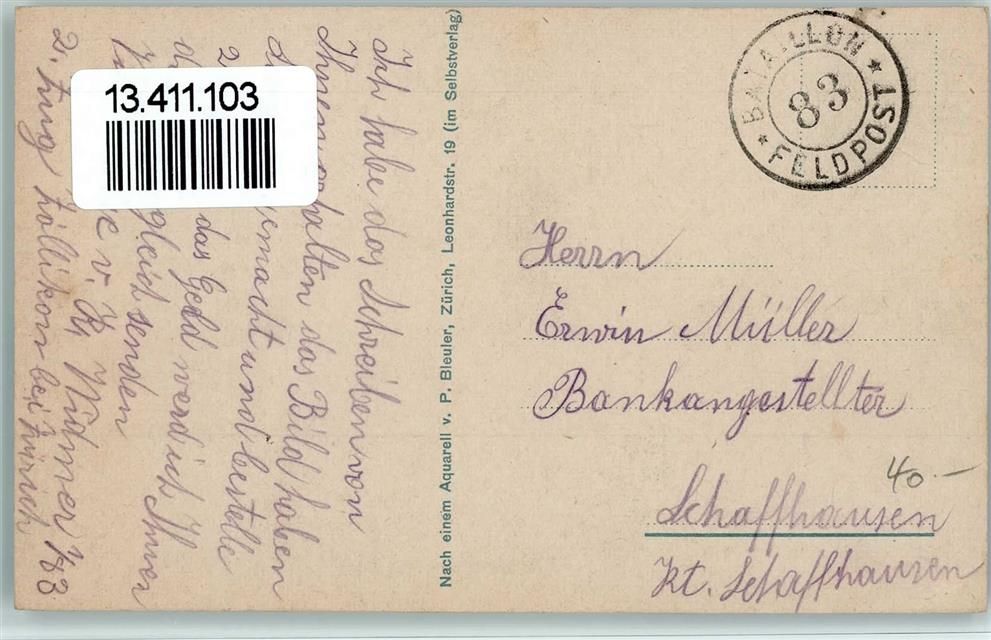 Ich habe das Schreiben von
Ihnen erhalten das Bild haben
gemacht und bestelle
2
das Geld werd ich Ihnen
gleich senden
v. Widmer 1/83
2. Zug Zollikon bei Zürich
13.411.103
Nach einem Aquarell v. P. Bleuler, Zürich, Leonhardstr. 19 (im Selbstverlag)
BATAILLON
83
FELDPOST
Herrn
Erwin Müller
Bankangestellter
40.—
Schaffhausen
Kt. Schaffhausen